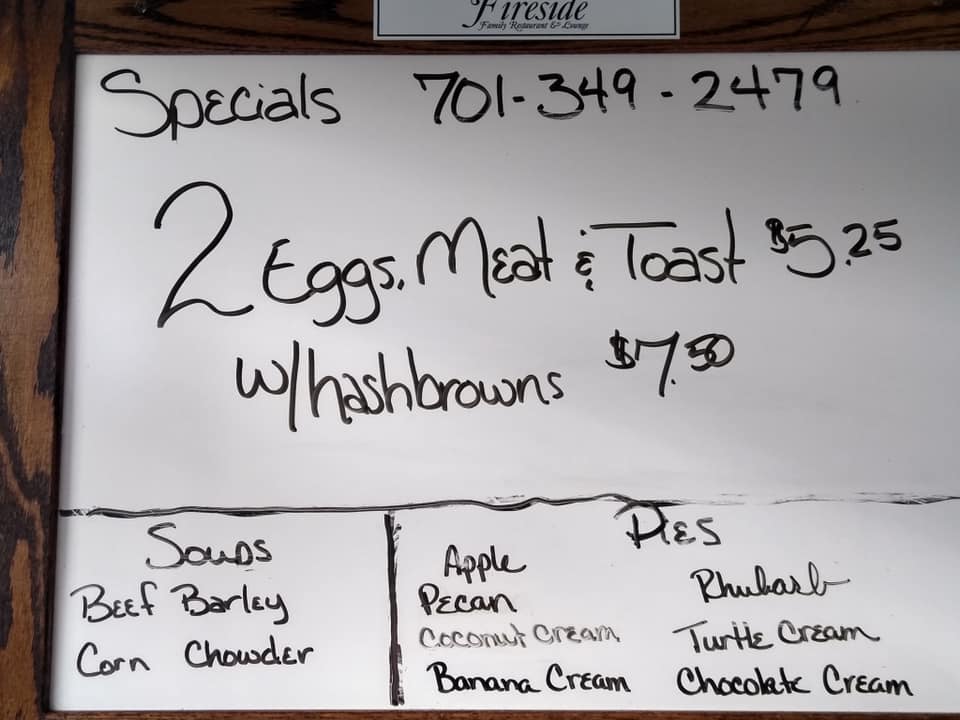 Fireside
Family Restaurant & Lounge
Specials 701-349-2479
2 Eggs, Meat & Toast $5.25
w/hashbrowns $7.50
Soups
Beef Barley
Corn Chowder
Pies
Apple
Pecan
Coconut Cream
Banana Cream
Rhubarb
Turtle Cream
Chocolate Cream